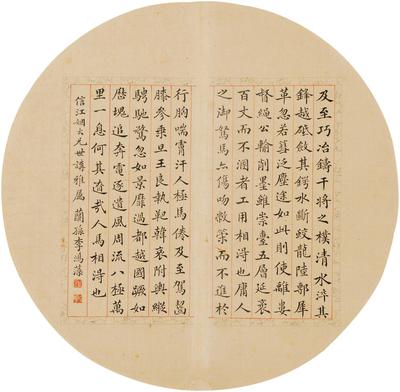 及至巧冶鑄干將之樸清水淬其
鋒越砥斂其鍔水斷蛟龍陸剸犀
革忽若篲泛塵塗如此則使離婁
督繩公輸削墨雖崇臺五層延袤
百丈而不溷者工用相得也庸人
之御駑馬亦傷吻敝策而不進於
行胸喘膚汗人極馬倦及至駕齧
膝參乘旦王良執靶韓哀附輿縱
騁馳騖忽如景靡過都越國蹶如
歷塊追奔電逐遺風周流八極萬
里一息何其遼哉人馬相得也
信江姻大兄世講雅屬 蘭孫李鴻藻